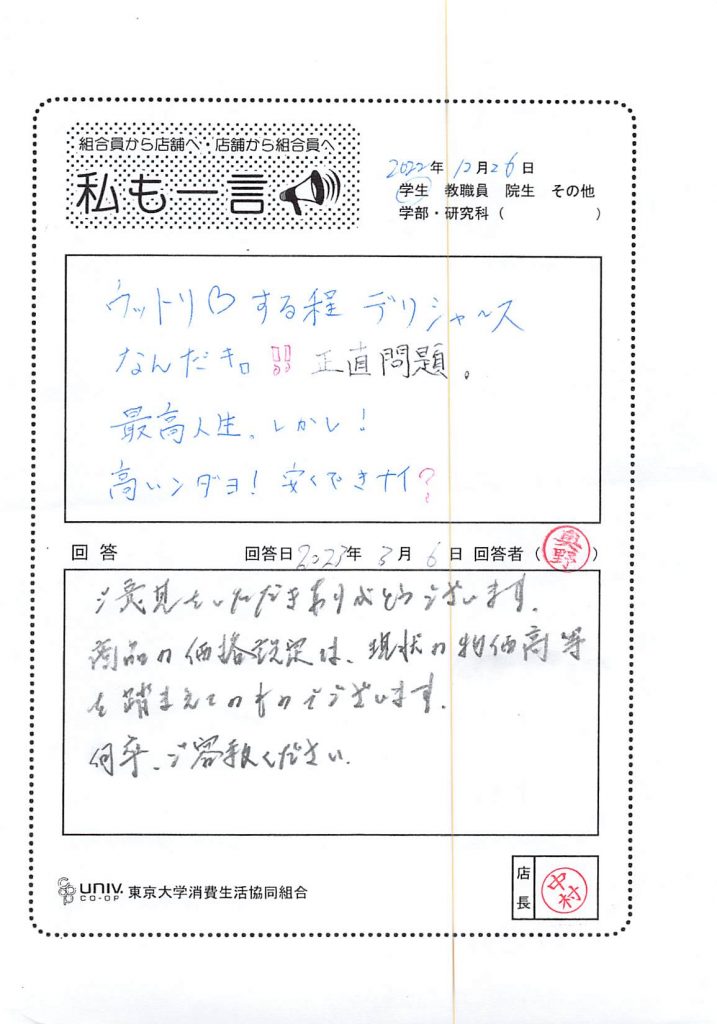 組合員から店舗へ・店舗から組合員へ
私も一言
2022年12月26日
学生 教職員 院生 その他
学部・研究科( )
ウットリ♡する程 デリシャース
なんだキ。!! 正直問題。
最高人生。しかし!
高いンダヨ! 安くできナイ?
回答 回答日2023年3月6日 回答者(奥野)
ご意見をいただきありがとうございます。
商品の価格設定は、現状の物価高等
を踏まえてのものでございます。
何卒、ご容赦ください。
UNIV. CO-OP 東京大学消費生活協同組合
店長 中村